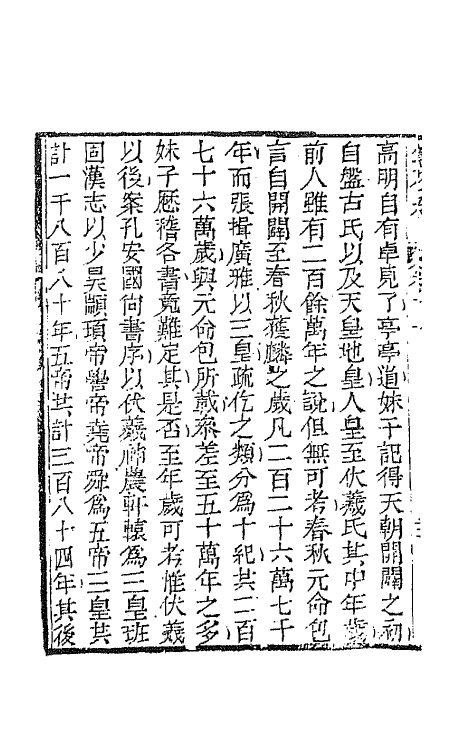 高明自有卓見了亭亭道妹子記得天朝開闢之初
自盤古氏以及天皇地皇人皇至伏羲氏其中年歲
前人雖有二百餘萬年之說但無可考春秋元命包
言自開闢至春秋獲麟之歲凡二百二十六萬七千
年而張揖廣雅以三皇疏仡之類分為十紀共二百
七十六萬歲與元命包所載參差至五十萬年之多
妹子歷稽各書竟難定其是否至年歲可考惟伏羲
以後案孔安國尚書序以伏羲神農軒轅為三皇班
固漢志以少昊顓頊帝嚳帝堯帝舜為五帝三皇共
計一千八百八十年五帝共計三百八十四年其後